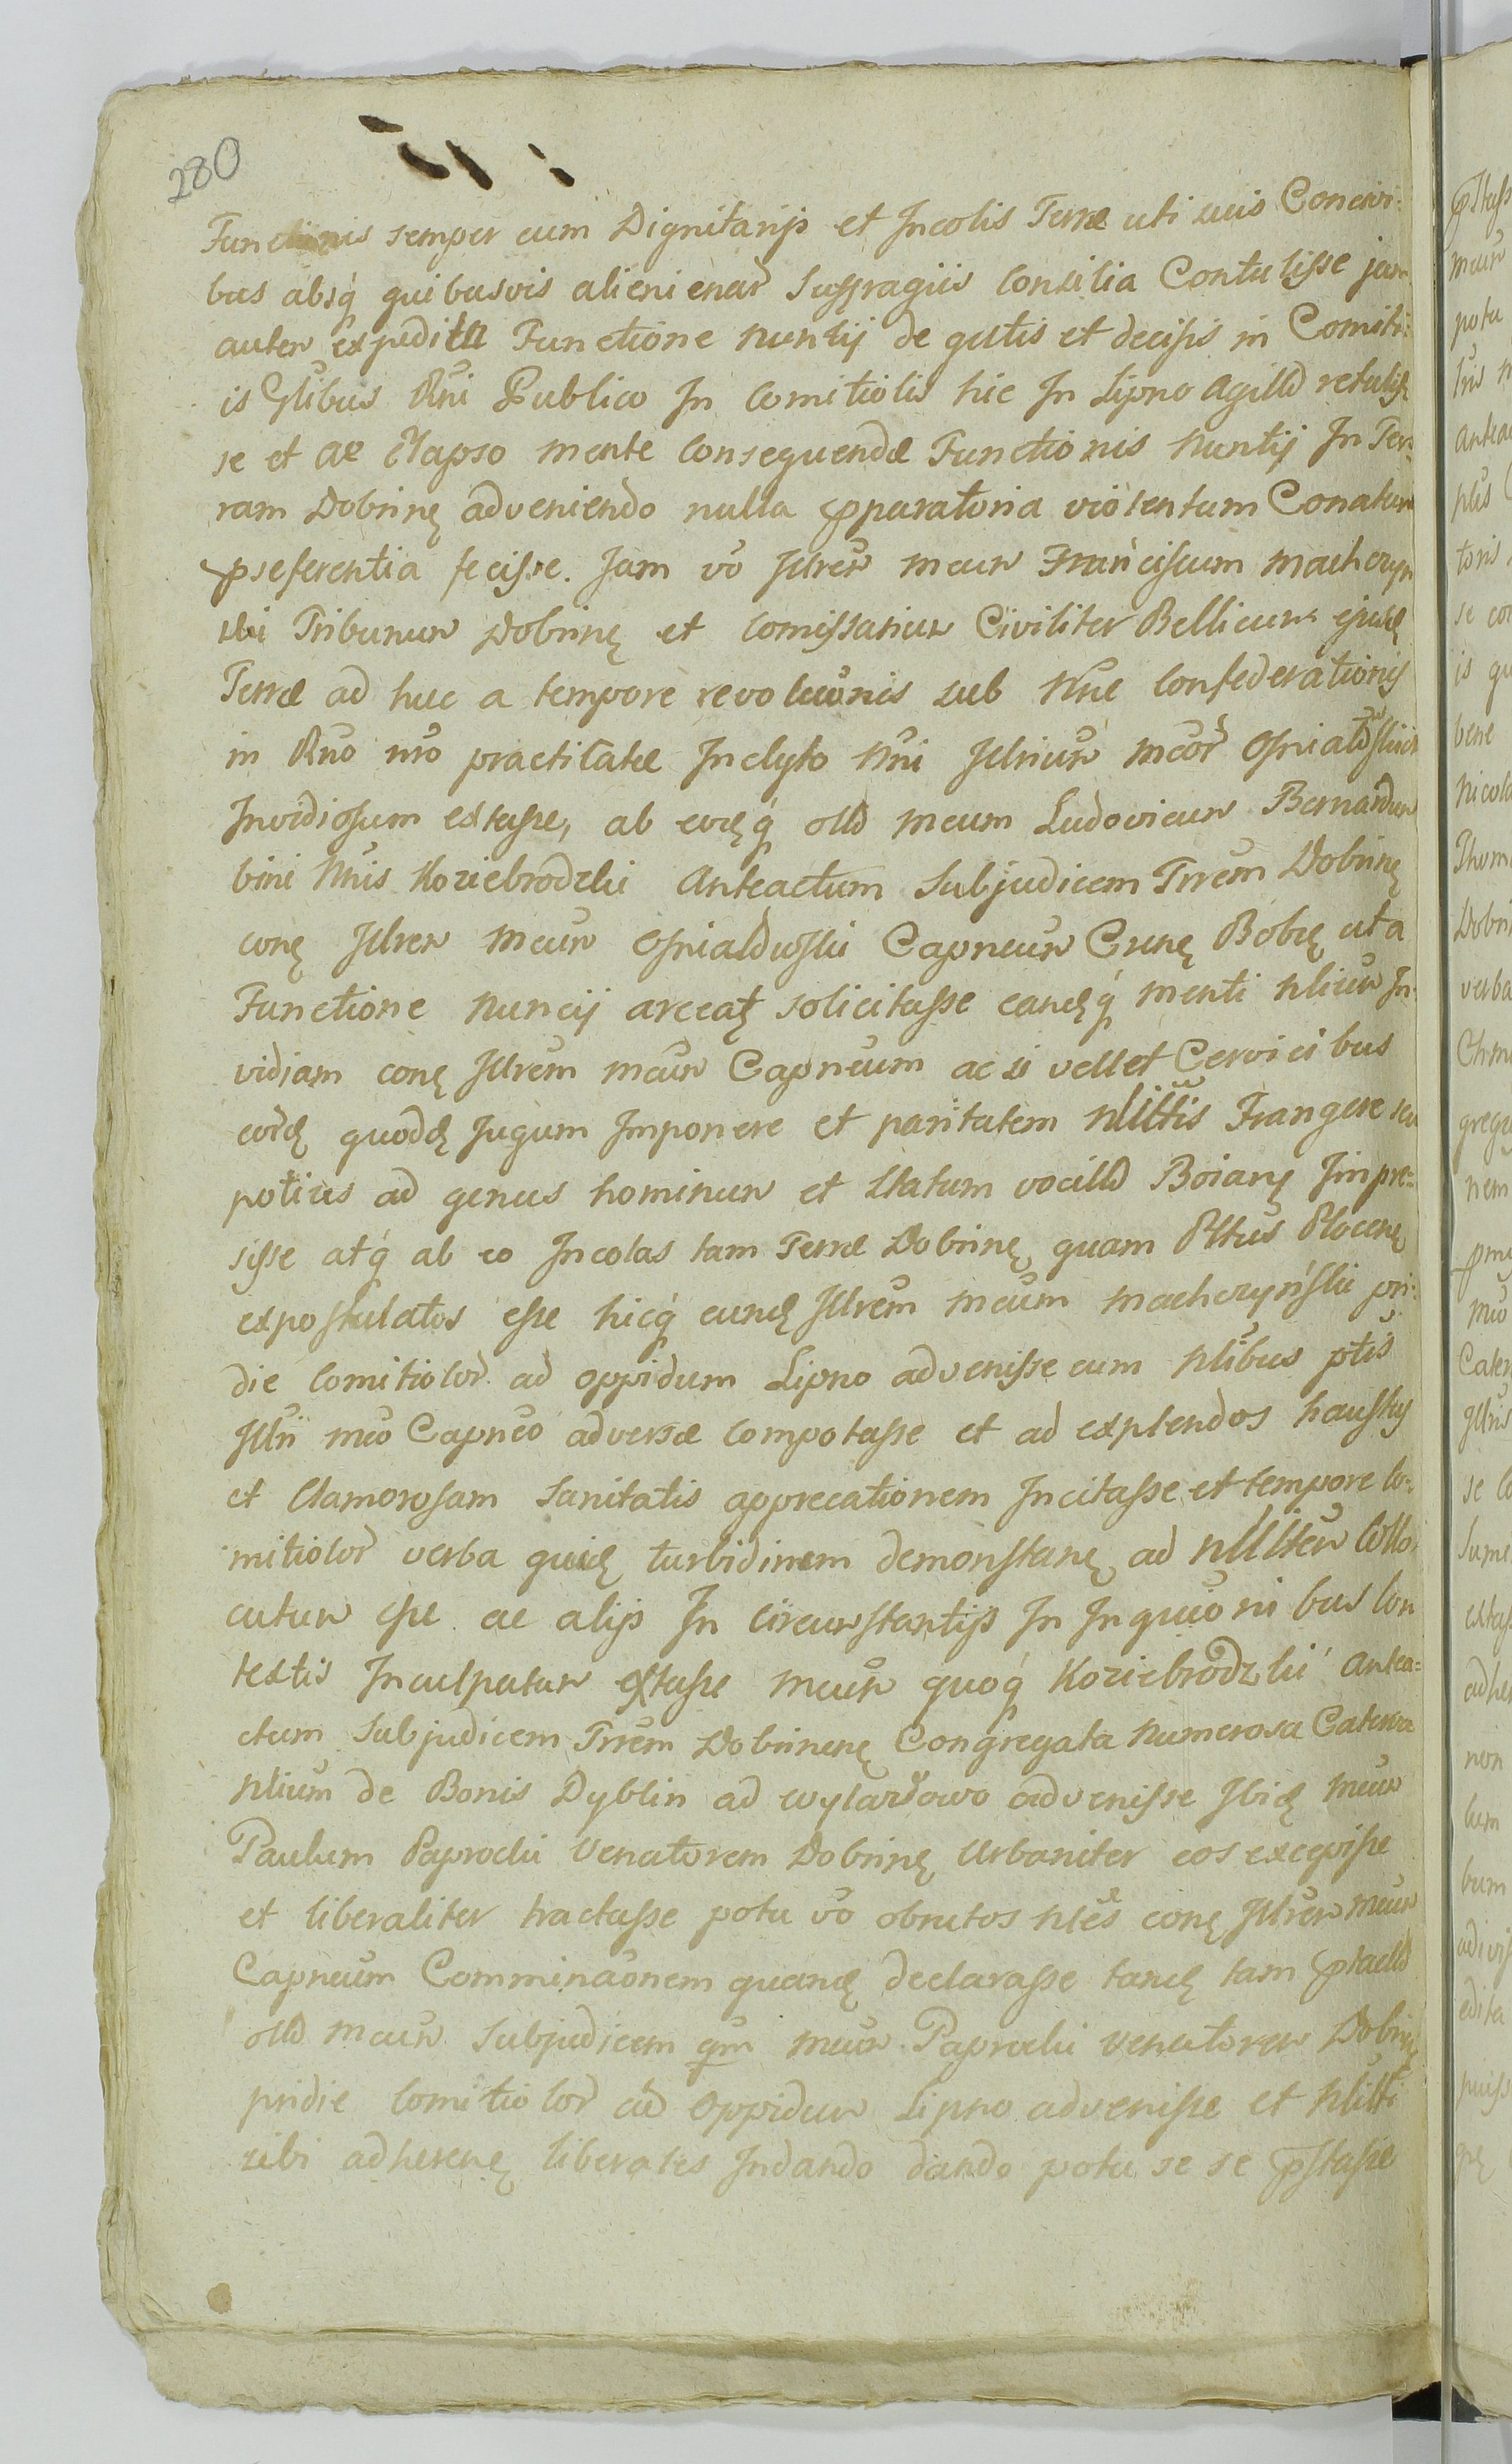 280
Functionis semper cum Dignitarijs et Incolis Terræ uti suis Concivi:
bus absq́ quibusvis alienienar̃ Suffragiis Consilia Contulisse jam
autem expedita Functione Nuntij de gestis et decisis in Comiti:
is Gñlibus Rñi Publico In Comitiolis hic In Lipno Agilld retulis
se et ac elapso mente Consequendæ Functionis Nuntij In Ter:
ram Dobrinę adveniendo nulla pparatoria violentum Conatum
pseferentia fecisse. Jam võ Jllrem meum Franciscum Machczyn
ski Tribunum Dobrinę et Comissarium Civiliter Bellicum ejusdę
Terræ ad huc a tempore revoluõnis sub Nñe Confederationis
in Rño nro practicatæ Inclyto Nñi Jllrium mcõr
Invidiosum extasse, ab eucęq́ olld meum Ludovicum Bernardum
bini Nñis Koziebrodzki Anteactum Subjudicem Trrẽm Dobrinę
conę Jllrem meum Ośniałowski Capneum Crunę Bobrę ut a
Functione Nuncij arceatę solicitasse eandęq́ menti Nlium In:
vidiam conę Jllrem meũm Capneum ac si vellet Cervicibus
eõrdę quoddę Jugum Imponere et paritatem Nlittis Frangere seu
potius ad genus hominum et statum vocilld Boiarę Impre:
sisse atq́ ab eo Incolas tam Terræ Dobrinę quam Pltũs Plocenę
expostulatos esse hicq́ eundę Jllrẽm meũm Machczyński pri:
die Comitiolor̃ ad oppidum Lipno advenisse cum Nlibus ptis
Jllri meõ Capneõ adversæ Compotasse et ad explendos haustus
et Clamorosam Sanitatis apprecationem Incitasse et tempore Co:
mitiolor̃ verba quiedę turbidinem demonstranę ad Nllitem Collo
cutum esse ac alijs In Circumstantijs In Inquiõnibus Con
textis Inculpatum extasse meũm quoq́ Koziebrodzki Antea:
ctum Subjudicem Trrẽm Dobrinenę Congregata Numerosa Caterva
Nlium de Bonis Dyblin ad Wylazłowo advenisse Ibidę meum
Paulum Paprocki Venatorem Dobrinę Urbaniter eos excepisse
et liberaliter tractasse potu võ obrutos Nles conę Jllrem meum
Capneum Comminaõnem quandę declarasse tandę tam ptaelld
olld meum Subjudicem qm meum Paprocki Venatorem Dobrinę
pridie Comitiolor̃ ad oppidum Lipno advenisse et Nlitti
sibi adherenę liberales Indando dando potu se se pstasse